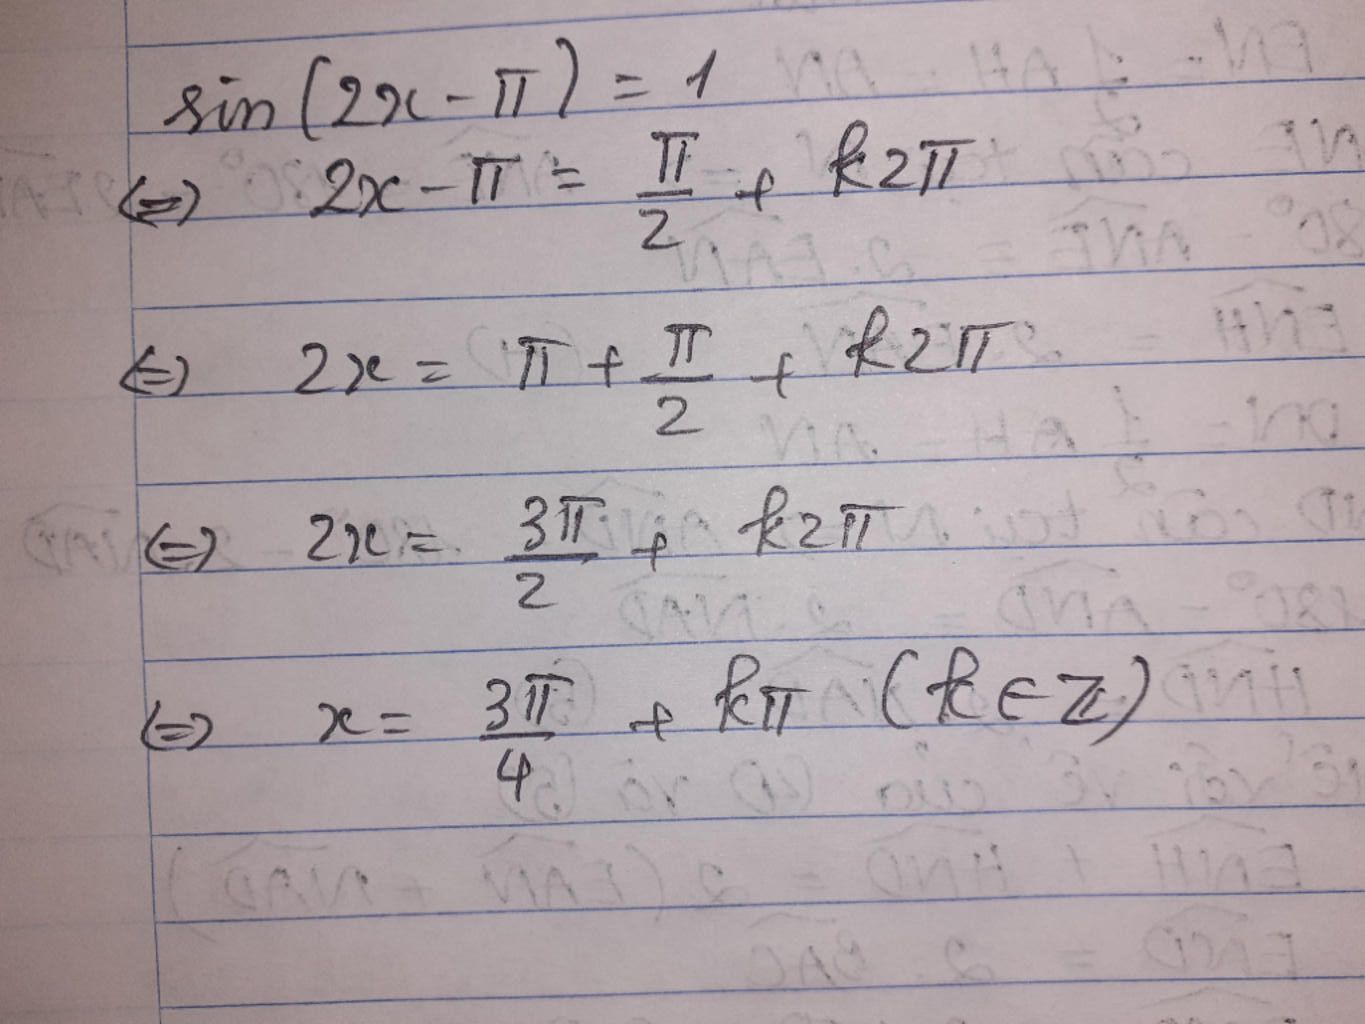 sin(2x-π) = 1
(=) 2x-π = π/2 + k2π
(=) 2x = π + π/2 + k2π
(=) 2x = 3π/2 + k2π
(=) x = 3π/4 + kπ (k∈ℤ)